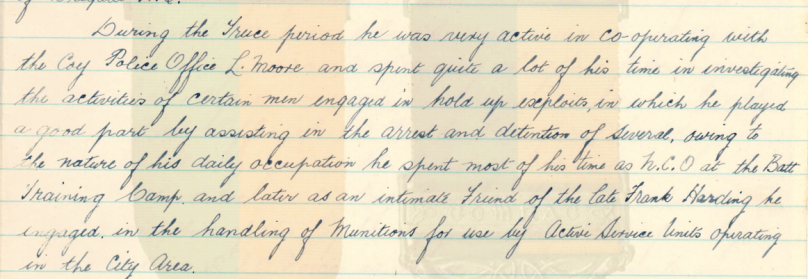 During the Truce period he was very active in co-operating with
the Coy Police Office L. Moore and spent quite a lot of his time in investigating
the activities of certain men engaged in hold up exploits, in which he played
a good part by assisting in the arrest and detention of several, owing to
the nature of his daily occupation he spent most of his time as N.C.O at the Batt
Training Camp. and later as an intimate Friend of the late Frank Harding he
engaged. in the handling of Munitions for use by Active Service Units operating
in the City Area.